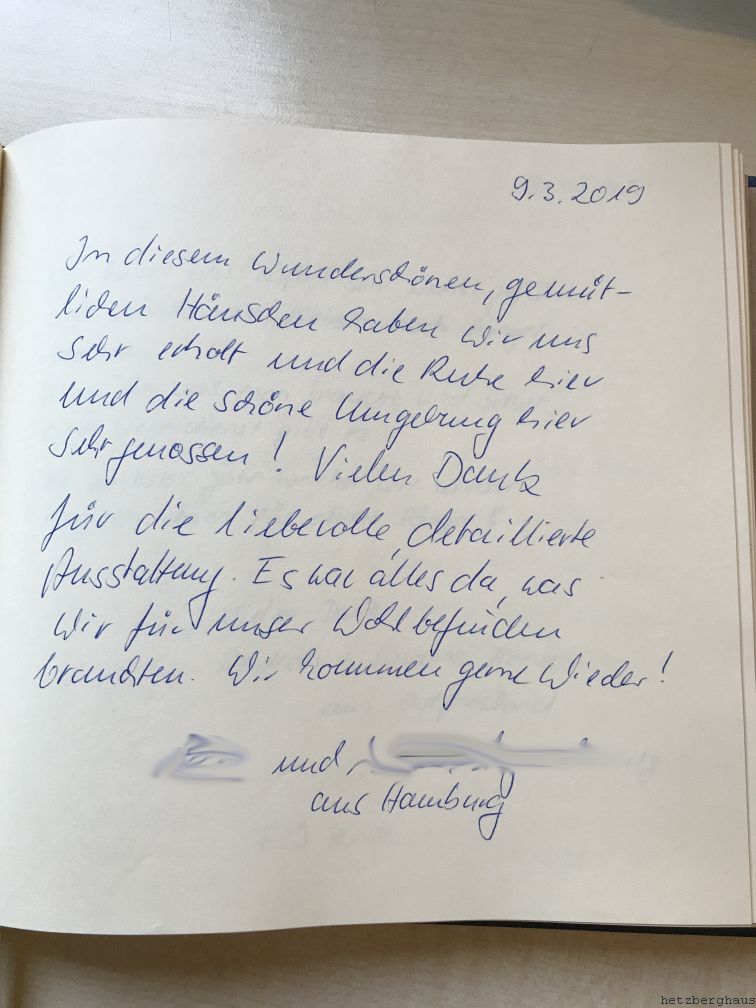 9.3.2019
In diesem wunderschönen, gemüt-
lichen Häuschen haben wir uns
sehr erholt und die Ruhe hier
und die schöne Umgebung hier
sehr genossen! Vielen Dank
für die liebevolle, detaillierte
Ausstattung. Es war alles da, was
wir für unser Wohlbefinden
brauchten. Wir kommen gerne wieder!
und
aus Hamburg
hetzberghaus